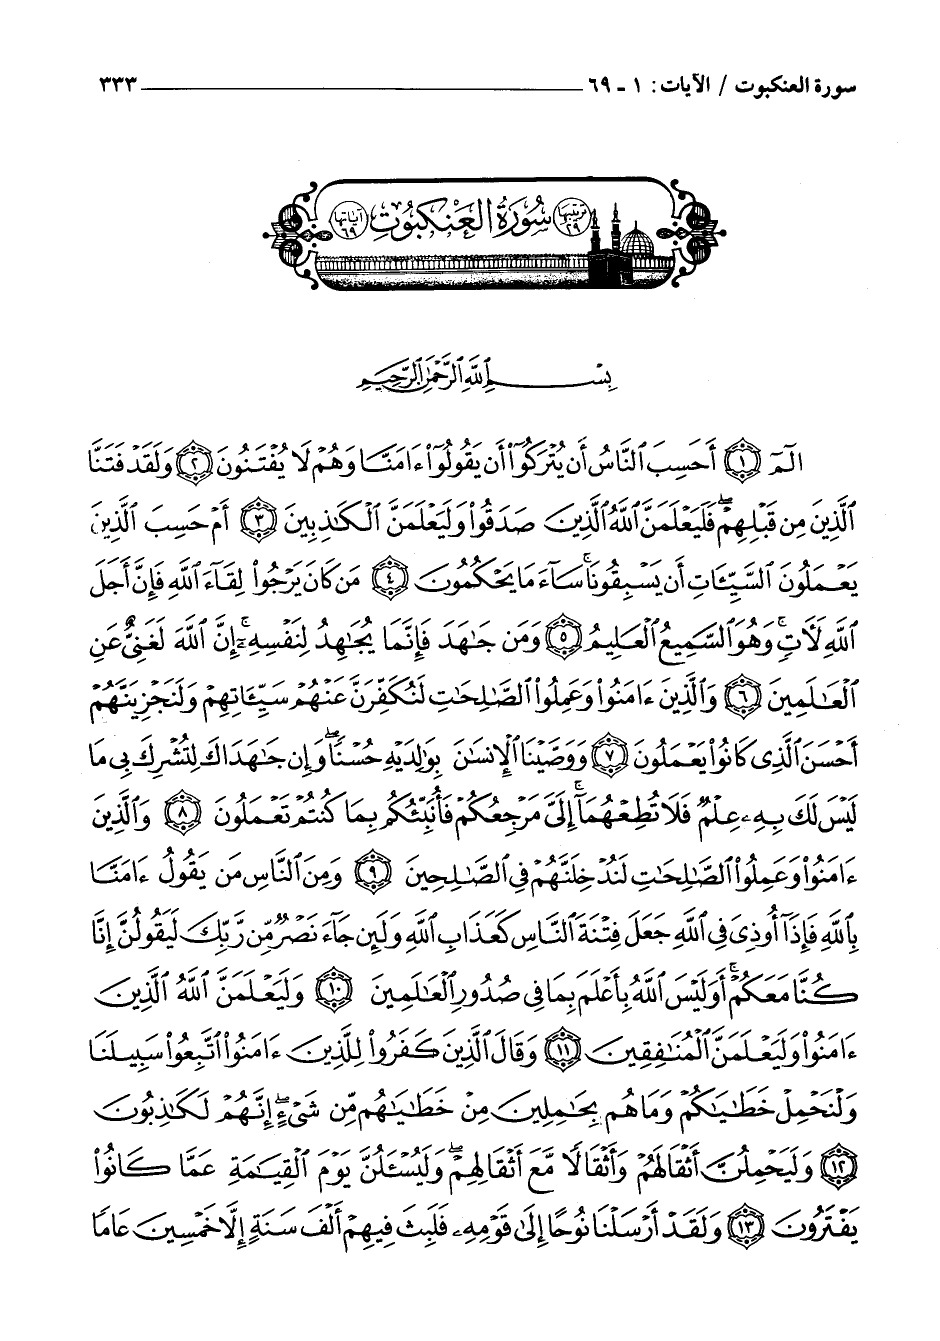 سورة العنكبوت / الآيات: ١ ـ ٦٩ ٣٣٣
ترتيبها ٢٩ سُورَةُ العَنكَبُوتِ آياتها ٦٩
بِسْمِ ٱللَّهِ ٱلرَّحْمَٰنِ ٱلرَّحِيمِ
الٓمٓ ۝١ أَحَسِبَ ٱلنَّاسُ أَن يُتْرَكُوٓا۟ أَن يَقُولُوٓا۟ ءَامَنَّا وَهُمْ لَا يُفْتَنُونَ ۝٢ وَلَقَدْ فَتَنَّا
ٱلَّذِينَ مِن قَبْلِهِمْ ۖ فَلَيَعْلَمَنَّ ٱللَّهُ ٱلَّذِينَ صَدَقُوا۟ وَلَيَعْلَمَنَّ ٱلْكَٰذِبِينَ ۝٣ أَمْ حَسِبَ ٱلَّذِينَ
يَعْمَلُونَ ٱلسَّيِّـَٔاتِ أَن يَسْبِقُونَا ۚ سَآءَ مَا يَحْكُمُونَ ۝٤ مَن كَانَ يَرْجُوا۟ لِقَآءَ ٱللَّهِ فَإِنَّ أَجَلَ
ٱللَّهِ لَـَٔاتٍ ۚ وَهُوَ ٱلسَّمِيعُ ٱلْعَلِيمُ ۝٥ وَمَن جَٰهَدَ فَإِنَّمَا يُجَٰهِدُ لِنَفْسِهِۦٓ ۚ إِنَّ ٱللَّهَ لَغَنِىٌّ عَنِ
ٱلْعَٰلَمِينَ ۝٦ وَٱلَّذِينَ ءَامَنُوا۟ وَعَمِلُوا۟ ٱلصَّٰلِحَٰتِ لَنُكَفِّرَنَّ عَنْهُمْ سَيِّـَٔاتِهِمْ وَلَنَجْزِيَنَّهُمْ
أَحْسَنَ ٱلَّذِى كَانُوا۟ يَعْمَلُونَ ۝٧ وَوَصَّيْنَا ٱلْإِنسَٰنَ بِوَٰلِدَيْهِ حُسْنًا ۖ وَإِن جَٰهَدَاكَ لِتُشْرِكَ بِى مَا
لَيْسَ لَكَ بِهِۦ عِلْمٌ فَلَا تُطِعْهُمَآ ۚ إِلَىَّ مَرْجِعُكُمْ فَأُنَبِّئُكُم بِمَا كُنتُمْ تَعْمَلُونَ ۝٨ وَٱلَّذِينَ
ءَامَنُوا۟ وَعَمِلُوا۟ ٱلصَّٰلِحَٰتِ لَنُدْخِلَنَّهُمْ فِى ٱلصَّٰلِحِينَ ۝٩ وَمِنَ ٱلنَّاسِ مَن يَقُولُ ءَامَنَّا
بِٱللَّهِ فَإِذَآ أُوذِىَ فِى ٱللَّهِ جَعَلَ فِتْنَةَ ٱلنَّاسِ كَعَذَابِ ٱللَّهِ وَلَئِن جَآءَ نَصْرٌ مِّن رَّبِّكَ لَيَقُولُنَّ إِنَّا
كُنَّا مَعَكُمْ ۚ أَوَلَيْسَ ٱللَّهُ بِأَعْلَمَ بِمَا فِى صُدُورِ ٱلْعَٰلَمِينَ ۝١٠ وَلَيَعْلَمَنَّ ٱللَّهُ ٱلَّذِينَ
ءَامَنُوا۟ وَلَيَعْلَمَنَّ ٱلْمُنَٰفِقِينَ ۝١١ وَقَالَ ٱلَّذِينَ كَفَرُوا۟ لِلَّذِينَ ءَامَنُوا۟ ٱتَّبِعُوا۟ سَبِيلَنَا
وَلْنَحْمِلْ خَطَٰيَٰكُمْ وَمَا هُم بِحَٰمِلِينَ مِنْ خَطَٰيَٰهُم مِّن شَىْءٍ ۖ إِنَّهُمْ لَكَٰذِبُونَ
۝١٢ وَلَيَحْمِلُنَّ أَثْقَالَهُمْ وَأَثْقَالًا مَّعَ أَثْقَالِهِمْ ۖ وَلَيُسْـَٔلُنَّ يَوْمَ ٱلْقِيَٰمَةِ عَمَّا كَانُوا۟
يَفْتَرُونَ ۝١٣ وَلَقَدْ أَرْسَلْنَا نُوحًا إِلَىٰ قَوْمِهِۦ فَلَبِثَ فِيهِمْ أَلْفَ سَنَةٍ إِلَّا خَمْسِينَ عَامًا